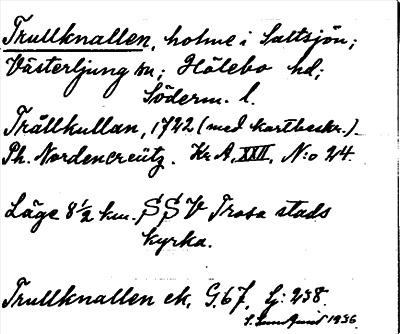 Trullknallen, holme i Saltsjön;
Västerljung sn; Hölebo hd;
Söderm. l.
Trållkullan, 1722 (med kartbeskr.).
Ph. Nordencreütz. Kr. A, XXII, N:o 24.
Läge 8 1/2 km. SSV Trosa stads
kyrka.
Trullknallen ek. G. 67, Lj: 238.
S. Lundquist 1936